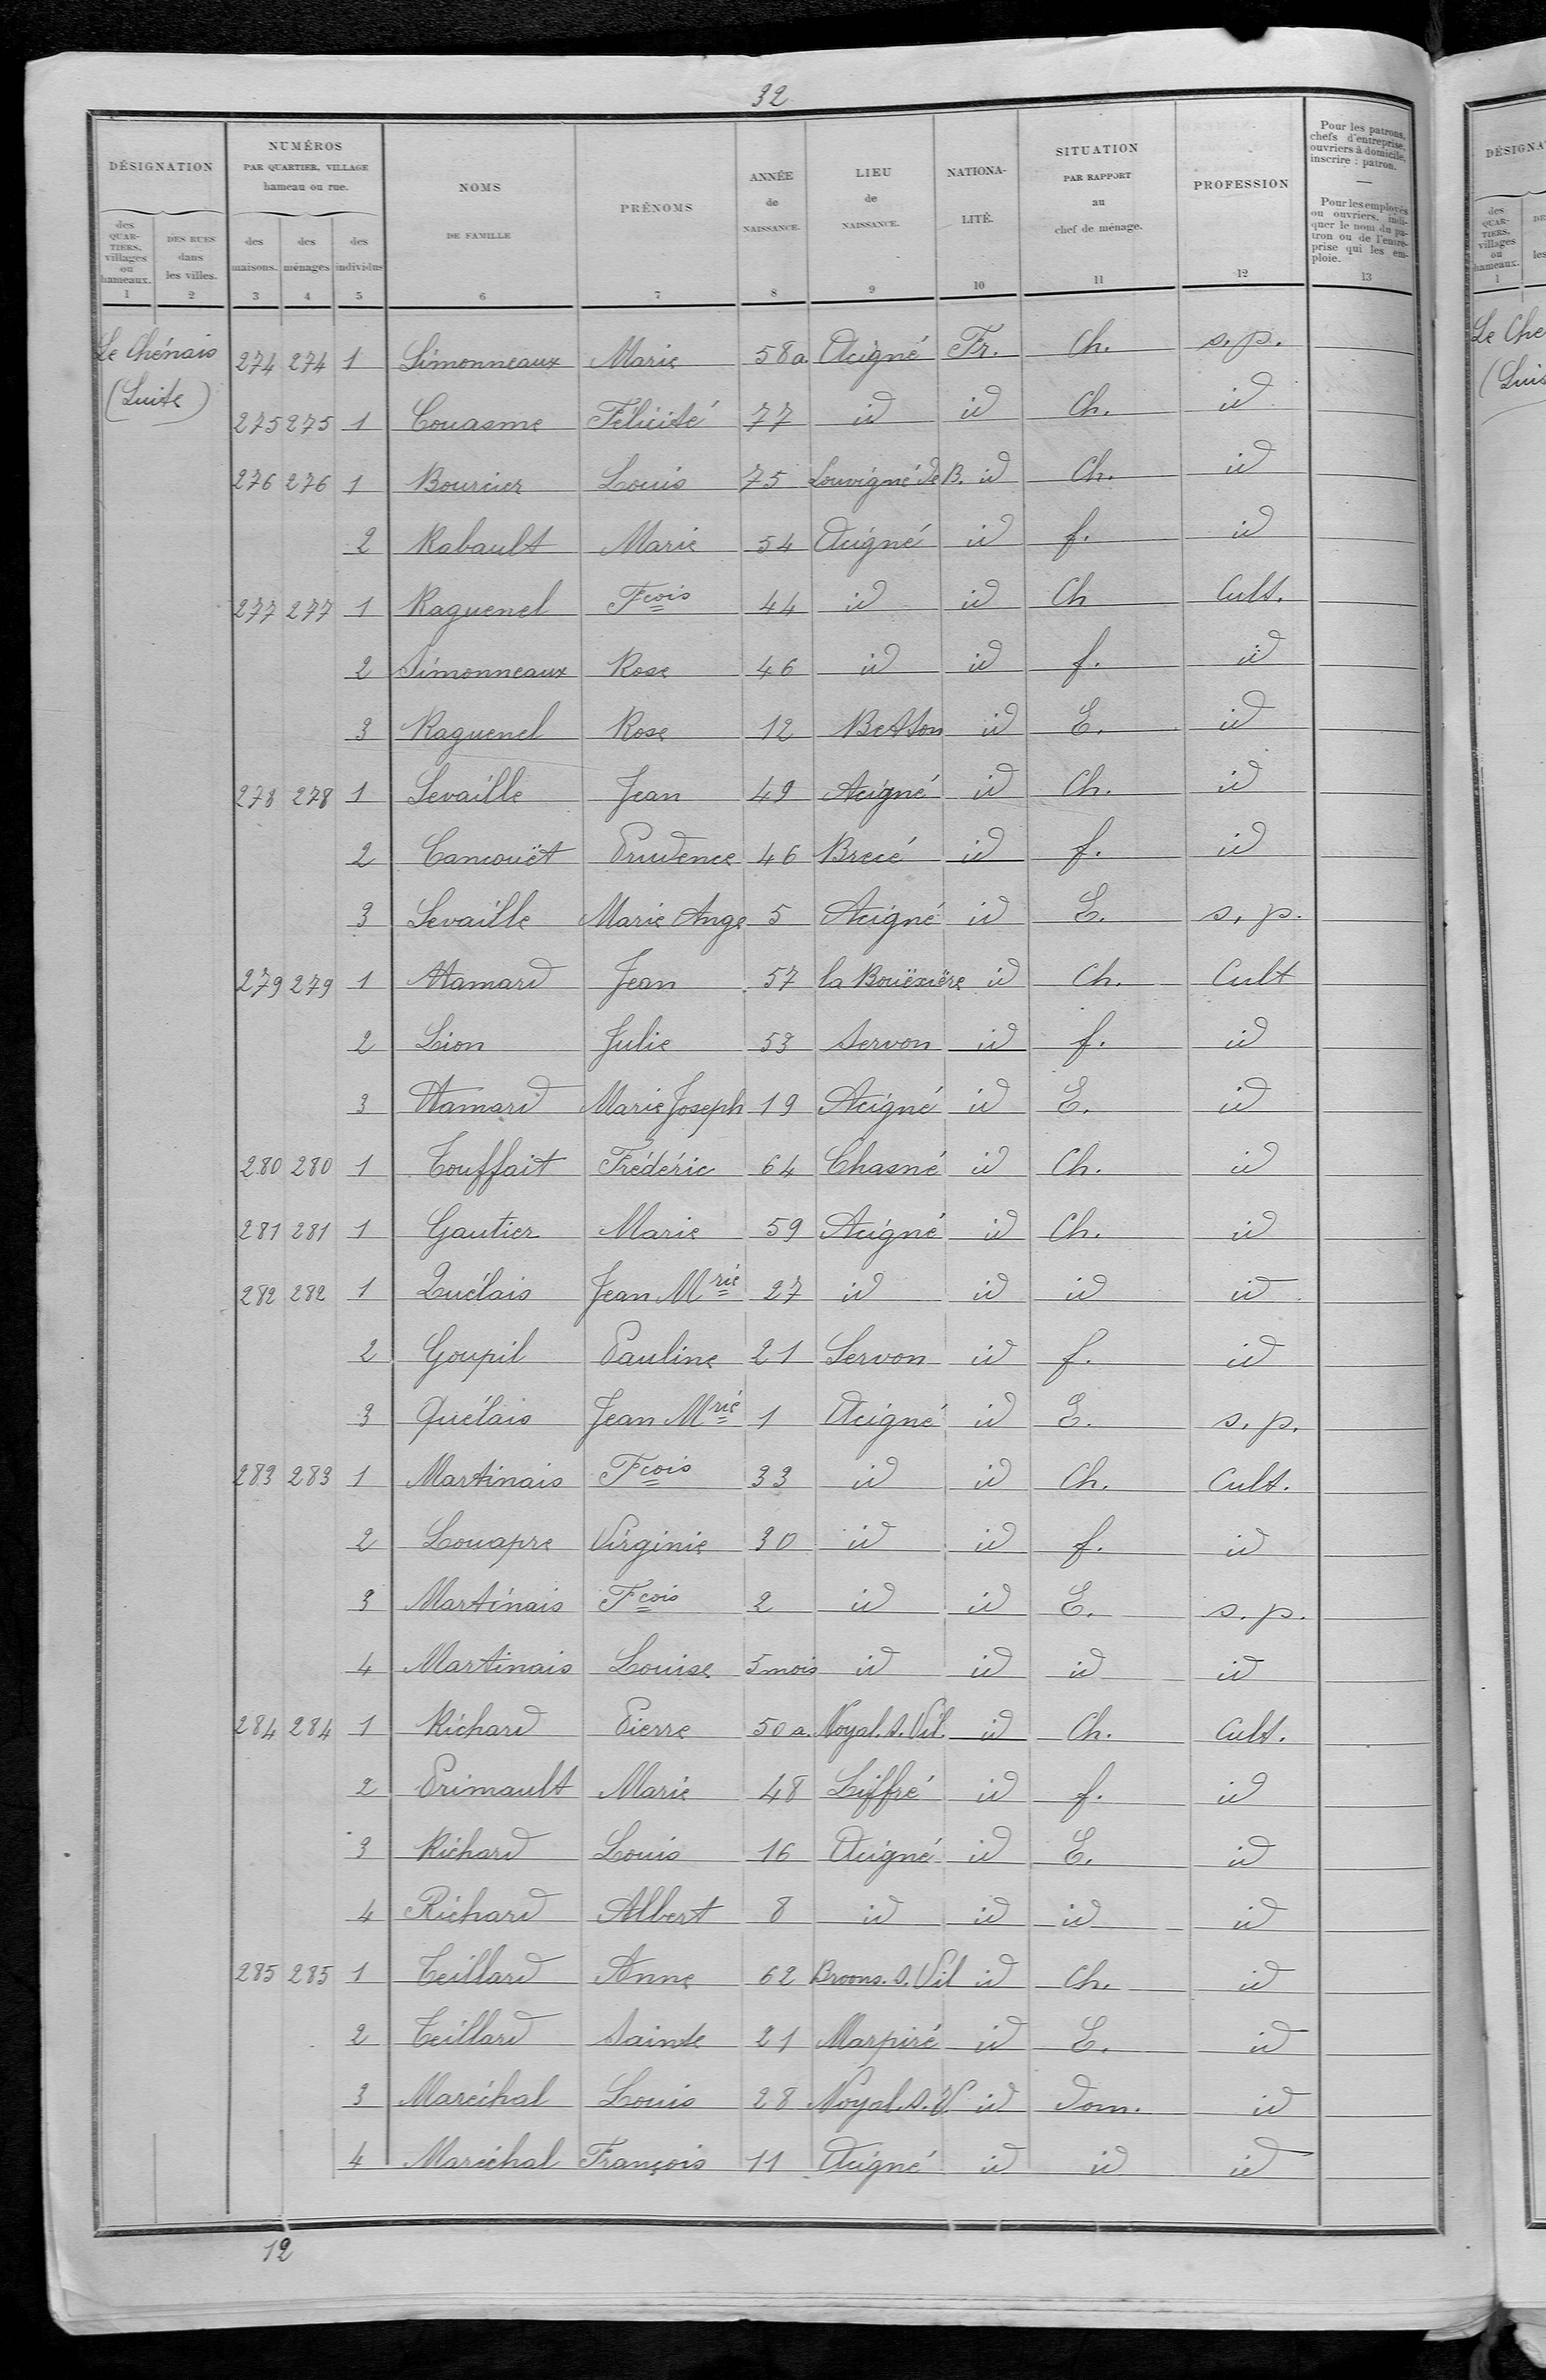 32
DÉSIGNATION
des QUARTIERS, villages ou hameaux. 1
DES RUES dans les villes. 2
NUMÉROS PAR QUARTIER, VILLAGE hameau ou rue.
des maisons. 3
des ménages 4
des individus 5
NOMS DE FAMILLE 6
PRÉNOMS 7
ANNÉE de NAISSANCE. 8
LIEU de NAISSANCE. 9
NATIONALITÉ. 10
SITUATION PAR RAPPORT au chef de ménage. 11
PROFESSION 12
Pour les patrons, chefs d'entreprise, ouvriers à domicile, inscrire : patron. — Pour les employés ou ouvriers, indiquer le nom du patron ou de l'entreprise qui les emploie. 13
Le Chénais 274 274 1 Simonneaux Marie 58 a. Acigné Fr. Ch. s. p.
(Suite) 275 275 1 Couasme Félicité 77 id id Ch. id
276 276 1 Bourcier Louis 75 Louvigné de B. id Ch. id
2 Rabault Marie 54 Acigné id f. id
277 277 1 Raguenel Fçois 44 id id Ch Cult.
2 Simonneaux Rose 46 id id f. id
3 Raguenel Rose 12 Betton id E. id
278 278 1 Levaille Jean 49 Acigné id Ch. id
2 Cancouët Prudence 46 Brecé id f. id
3 Levaille Marie Ange 5 Acigné id E. s. p.
279 279 1 Hamard Jean 57 la Bouëxière id Ch. Cult
2 Lion Julie 53 Servon id f. id
3 Hamard Marie Joseph 19 Acigné id E. id
280 280 1 Touffait Frédéric 64 Chasné id Ch. id
281 281 1 Gautier Marie 59 Acigné id Ch. id
282 282 1 Quélais Jean Mrie 27 id id id id
2 Goupil Pauline 21 Servon id f. id
3 Quélais Jean Mrie 1 Acigné id E. s. p.
283 283 1 Martinais Fçois 33 id id Ch. Cult.
2 Louapre Virginie 30 id id f. id
3 Martinais Fçois 2 id id E. s. p.
4 Martinais Louise 5 mois id id id id
284 284 1 Richard Pierre 50 a. Noyal. s. Vil. id Ch. Cult.
2 Primault Marie 48 Liffré id f. id
3 Richard Louis 16 Acigné id E. id
4 Richard Albert 8 id id id id
285 285 1 Teillard Anne 62 Broons. s. Vil id Ch. id
2 Teillard Sainte 21 Marpiré id E. id
3 Maréchal Louis 28 Noyal. s. V. id dom. id
4 Maréchal François 11 Acigné id id id
12
DÉSIGNA
des QUARTIERS, villages ou hameaux. 1
Le Che
(Suis